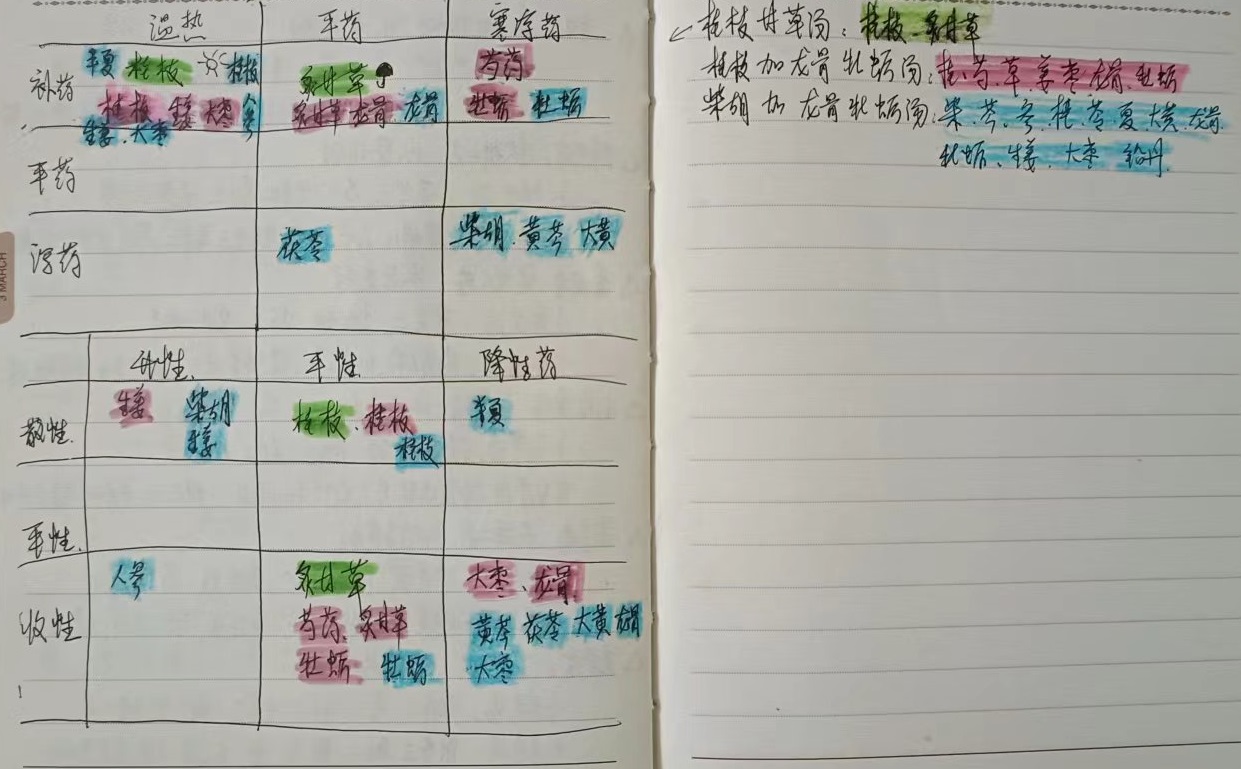 温热 平药 寒凉药
补药 半夏 桂枝 桂枝 炙甘草 芍药
桂枝 生姜 大枣 人参 炙甘草 龙骨 龙骨 牡蛎 牡蛎
生姜、大枣
平药
泻药 茯苓 柴胡、黄芩 大黄
升性 平性 降性药
散性 生姜 柴胡 桂枝、桂枝 半夏
生姜 桂枝
平性
收性 人参 炙甘草 大枣、龙骨
芍药、炙甘草 黄芩 茯苓 大黄 龙骨
牡蛎 牡蛎 大枣
3 MARCH
桂枝甘草汤:桂枝 炙甘草
桂枝加龙骨牡蛎汤:桂、芍、草、姜、枣、龙骨、牡蛎
柴胡加龙骨牡蛎汤:柴、芩、参、桂、苓、夏、大黄、龙骨
牡蛎、生姜、大枣 铅丹